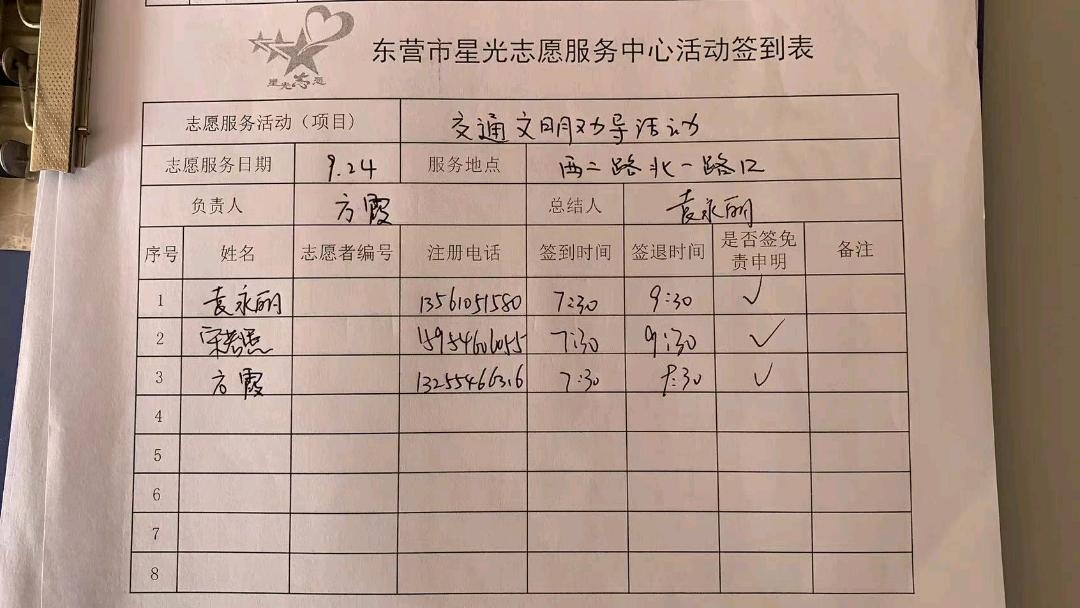 星光志愿
东营市星光志愿服务中心活动签到表
志愿服务活动（项目） 交通文明劝导活动
志愿服务日期 9.24 服务地点 西二路北一路口
负责人 方霞 总结人 袁永丽
序号 姓名 志愿者编号 注册电话 签到时间 签退时间 是否签免责申明 备注
1 袁永丽 13561051580 7:30 9:30 ✓
2 15954606055 7:30 9:30 ✓
3 方霞 13255466316 7:30 9:30 ✓
4
5
6
7
8